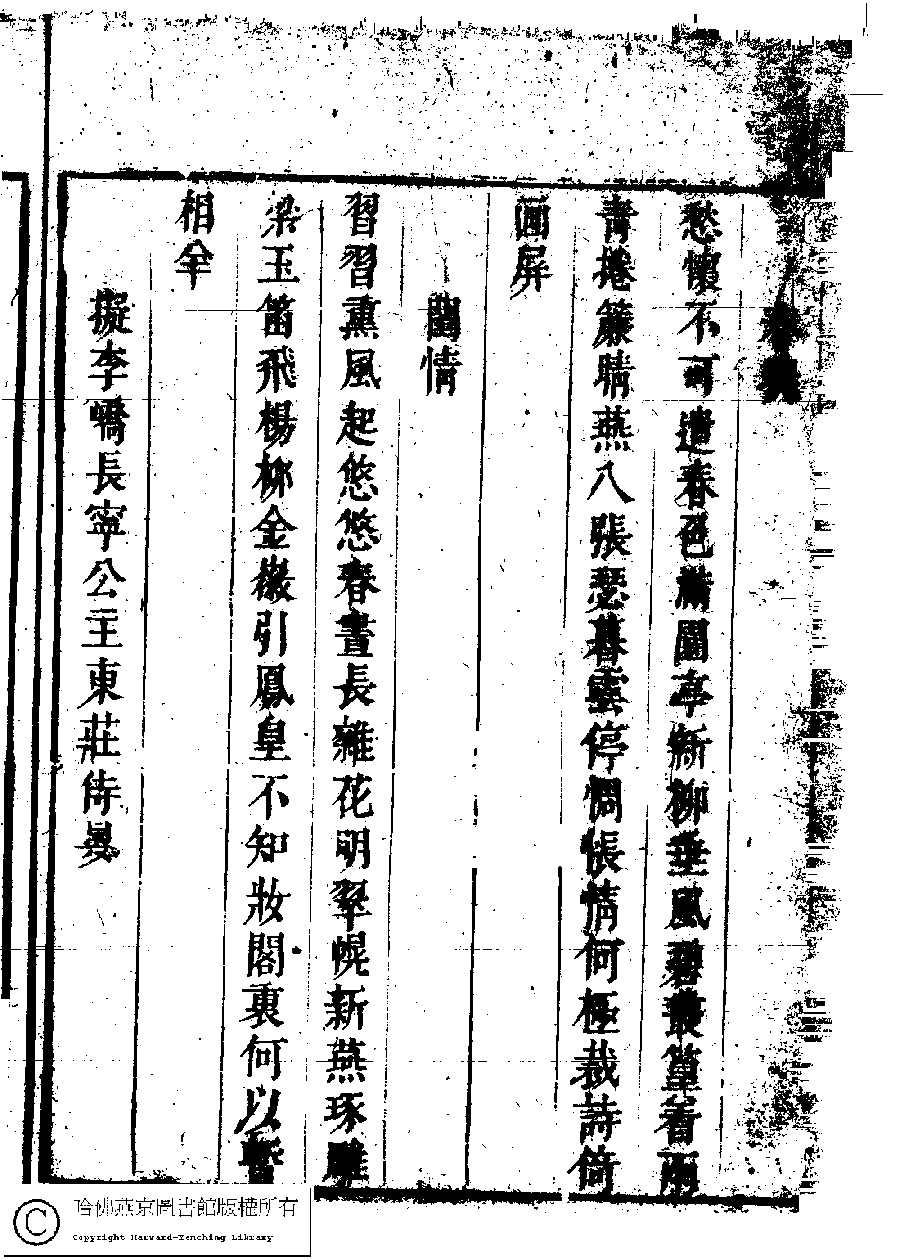 春
愁懷不可遣春色滿園亭新柳垂風碧叢篁着雨
青捲簾晴燕入張瑟暮雲停惆悵情何極裁詩倚
画屏
情
習習熏風起悠悠春晝長雜花明翠幌新燕琢雕
梁玉笛飛楊柳金徽引鳳皇不知妝閣裏何以暫
相羊
擬李嶠長寧公主東莊侍晏
哈佛燕京圖書館版權所有
Copyright Harvard-Yenching Library